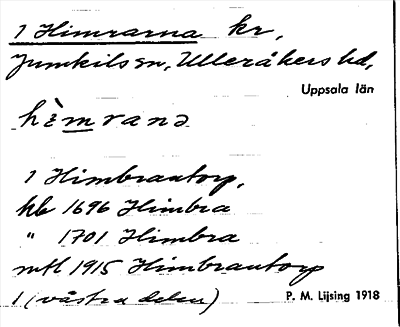 1 Himrarna kr,
Jumkils sn, Ulleråkers hd,
Uppsala län
hìmrana
1 Himbrautorp,
kb 1696 Himbra
" 1701 Himbra
mtl 1915 Himbrautorp
1 (västra delen)
P. M. Lijsing 1918